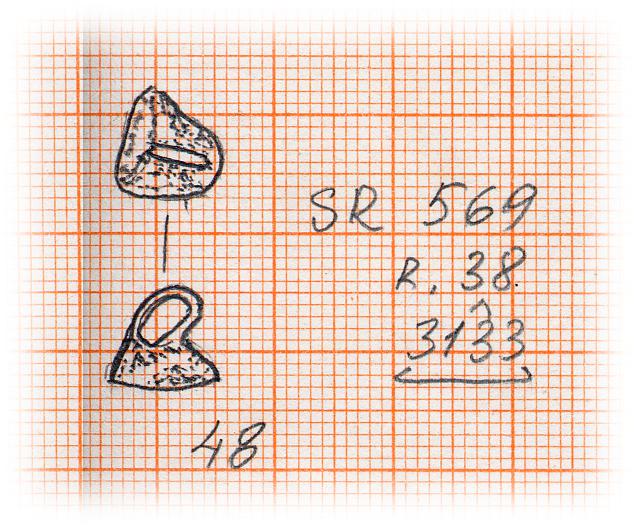 SR 569
R. 38
3133
48